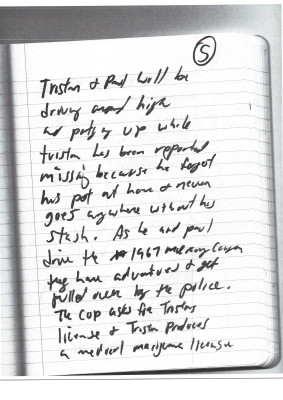 5
Tristan & Paul will be
driving around high
and partying up while
tristan has been reported
missing because he forgot
his pot at home & never
goes anywhere without his
stash. As he and paul
drive the 1967 mercury Cougar
they have adventures & get
pulled over by the police.
The cop asks for Tristans
license & Tristan produces
a medical marijuana license